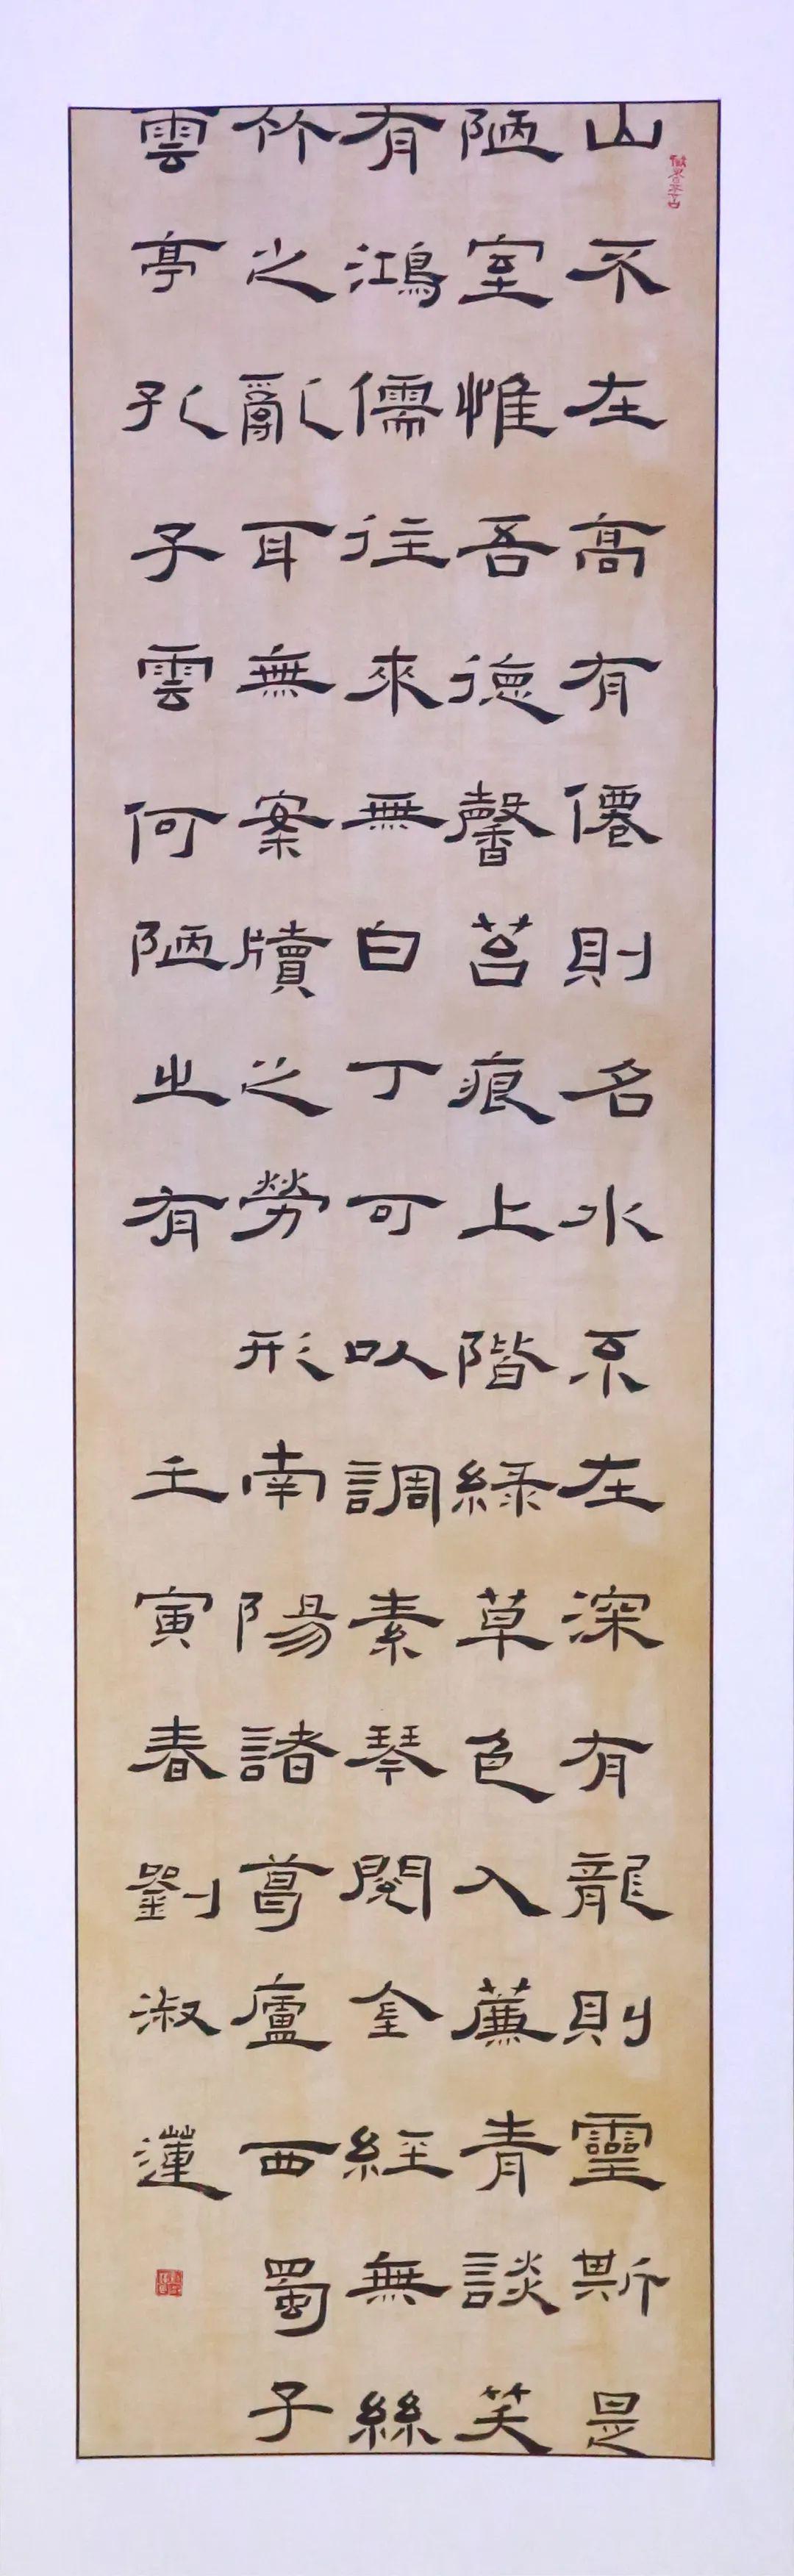 山不在高有僊則名水不在深有龍則靈斯是
陋室惟吾德馨苔痕上階綠草色入簾青談笑
有鴻儒往來無白丁可以調素琴閱金經無絲
竹之亂耳無案牘之勞形南陽諸葛廬西蜀子
雲亭孔子雲何陋之有 壬寅春劉淑蓮